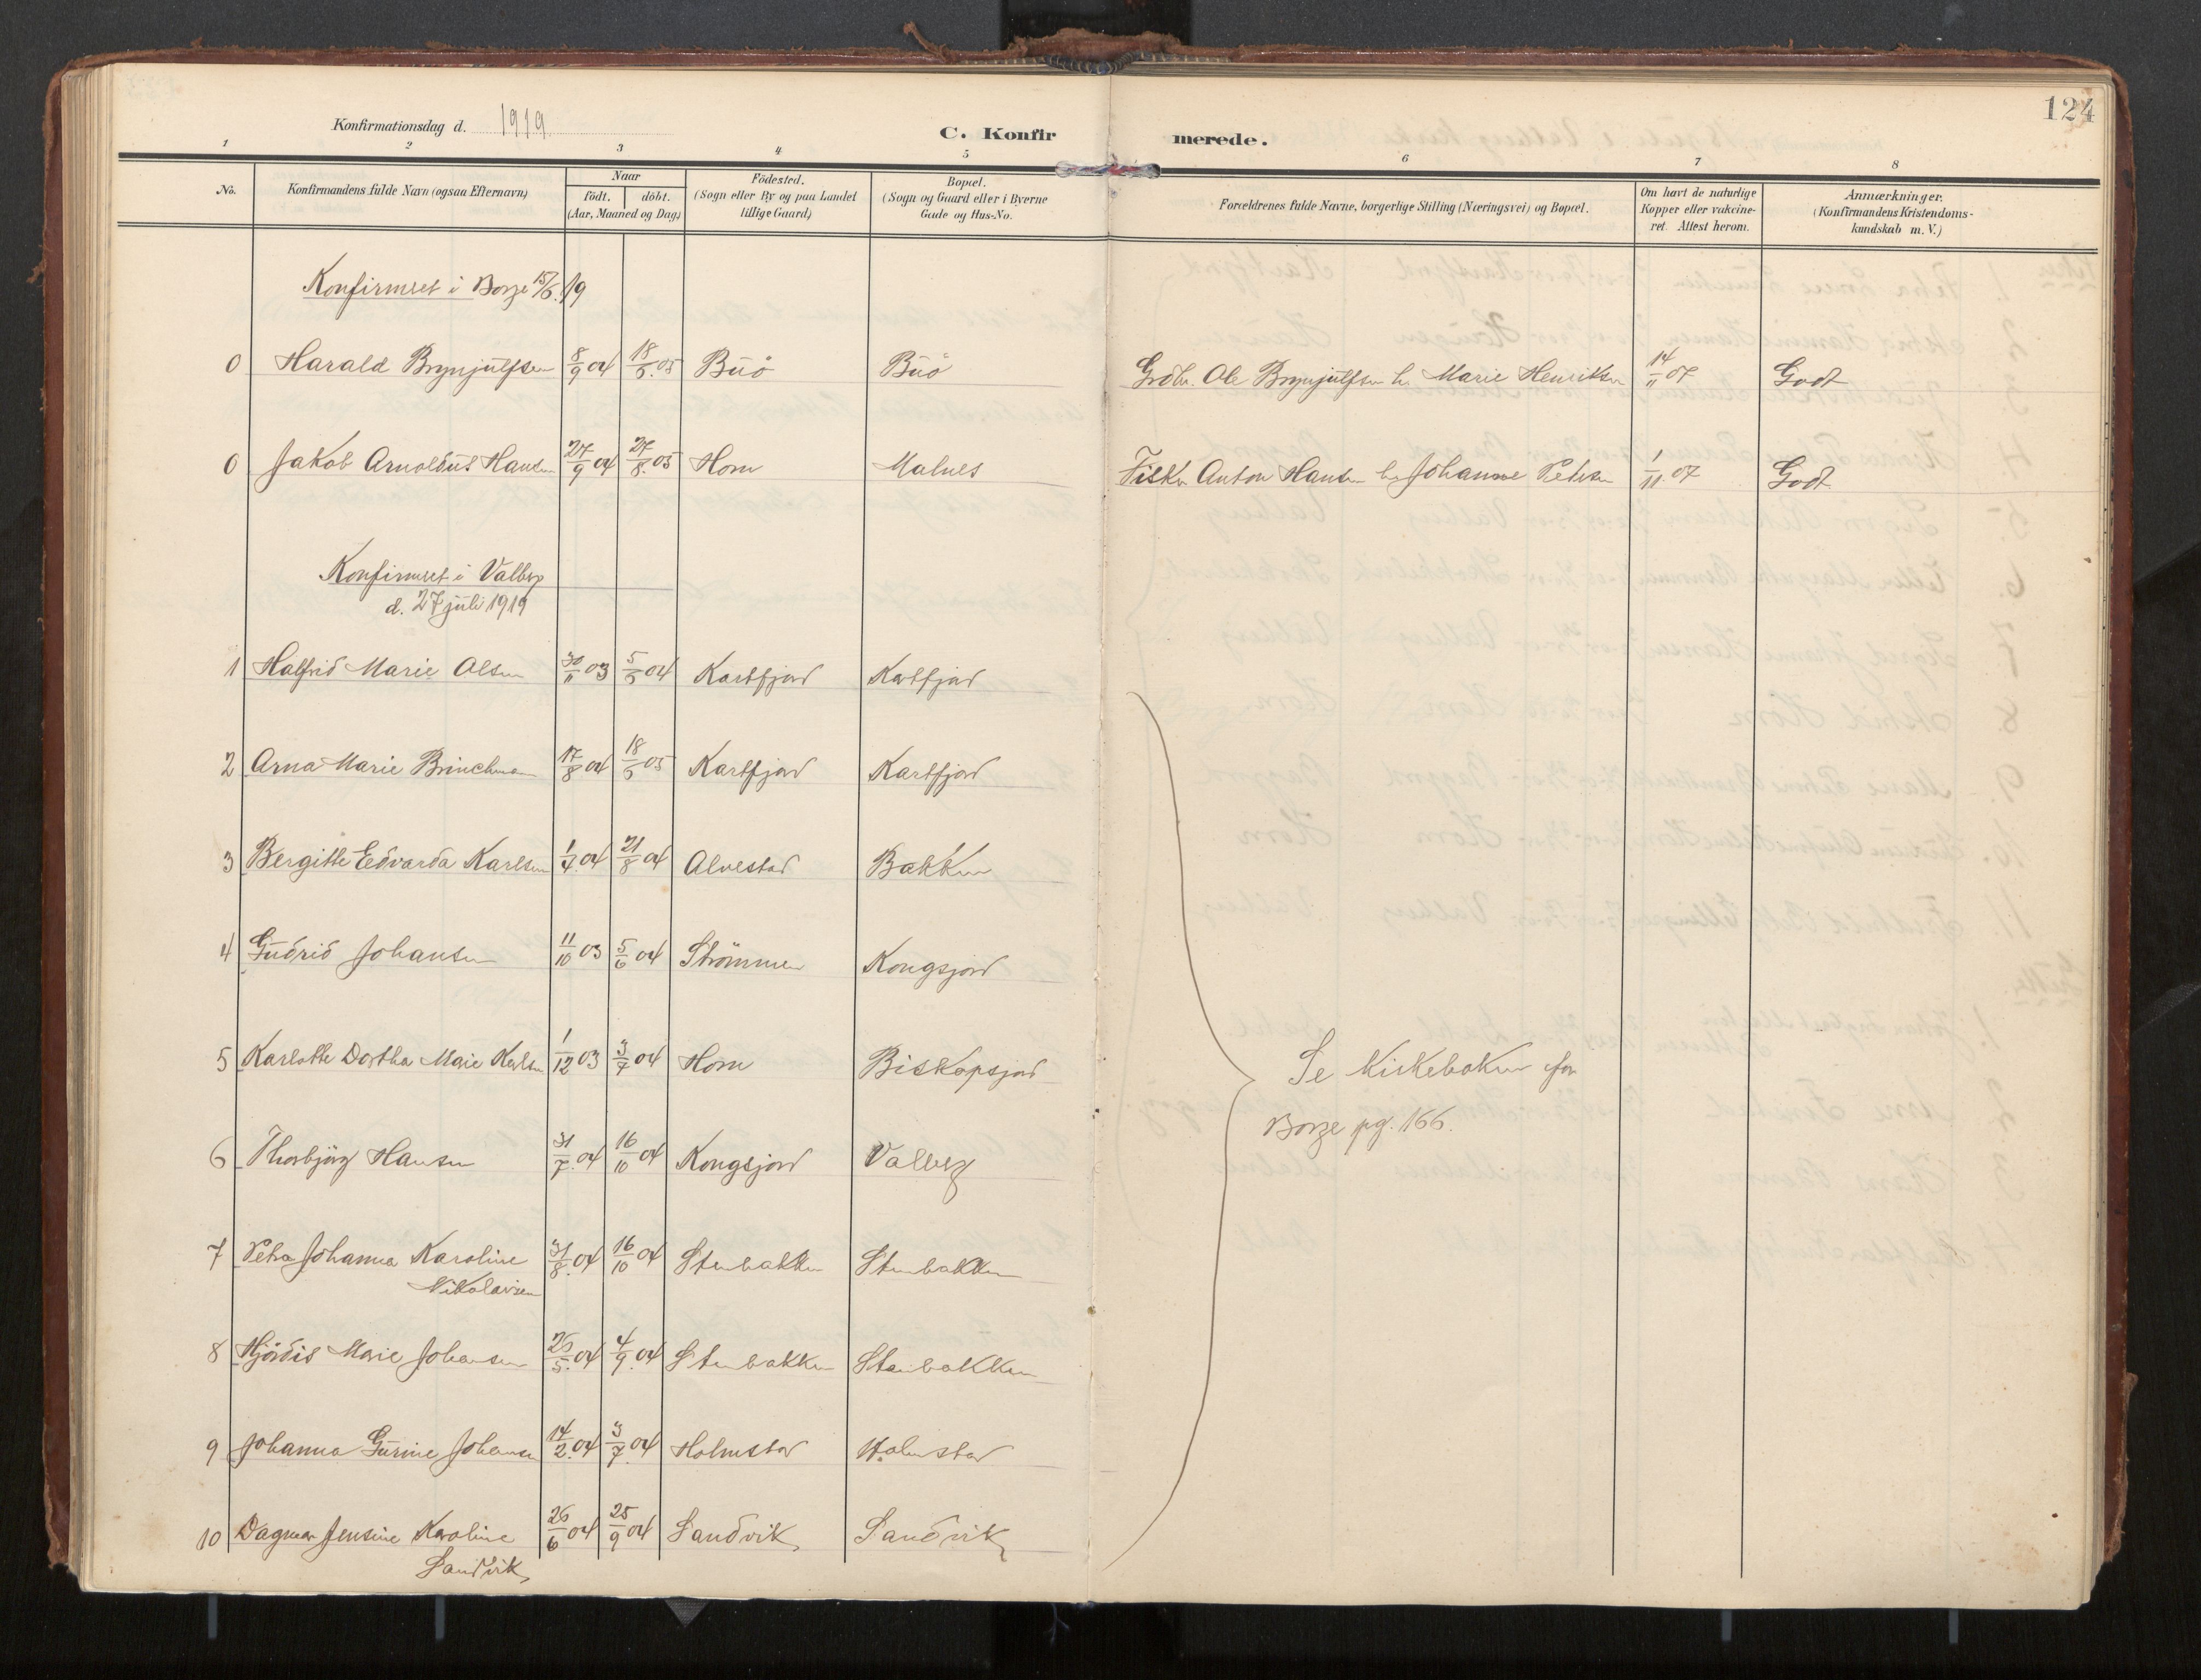 124
Konfirmationsdag d. 1919
C. Konfirmerede.
1 2 3 4 5 6 7 8
No. Konfirmandens fulde Navn (ogsaa Efternavn) Naar födt. döbt. (Aar, Maaned og Dag) Födested. (Sogn eller By og paa Landet tillige Gaard) Bopæl. (Sogn og Gaard eller i Byerne Gade og Hus-No. Forældrenes fulde Navne, borgerlige Stilling (Næringsvei) og Bopæl. Om havt de naturlige Kopper eller vakcineret. Attest herom. Anmærkninger. (Konfirmandens Kristendomskundskab m. V.)
Konfirmeret i Borge 15/6. 19
0 Harald Brynjülfsen 8/9 04 18/6. 05 Büö Büö Grdbr. Ole Brynjülfsen h. Marie Henriksen 14/11 07 Godt
0 Jakob Arnoldüs Hansen 27/9 04 27/8. 05 Horn Malnes Fisker Anton Hansen h. Johanne Petersen 1/11. 07 Godt
Konfirmeret i Valberg
d. 27 jüli 1919
1 Halfrid Marie Olsen 30/11 03 5/6 04 Kartfjord Kartfjord
2 Arna Marie Brinchman 17/8 04 18/6 05 Kartfjord Kartfjord
3 Bergitte Edvarda Karlsen 1/4. 04 21/8 04 Alvestad Bakken
4 Güdrid Johansen 11/10 03 5/6 04 Strömmen Kongsjord
5 Karlotte Dortha Marie Karlsen 1/12 03 3/7 04 Horn Biskopsjord
Se Kirkeboken for
Borge pg. 166.
6 Thorbjörg Hansen 31/7. 04 16/10 04 Kongsjord Valberg
7 Petra Johanna Karoline 31/8. 04 16/10 04 Stenbakken Stenbakken
Nikolaisen
8 Hjördis Marie Johansen 26/5. 04 4/9. 04 Stenbakken Stenbakken
9 Johanna Gürine Johansen 14/2. 04 3/7. 04 Holmstad Holmstad
10 Dagmar Jensine Karoline 26/6 04 25/9 04 Sandvik Sandvik
Sandvik